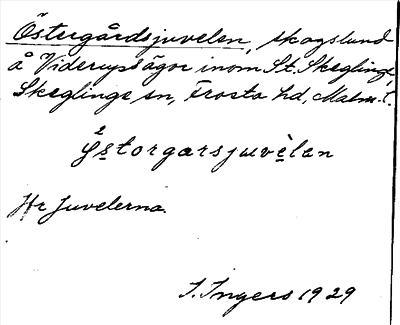 Östergårdsjuvelen, skogslund
å Viderups ägor inom St. Skeglinge,
Skeglinge sn, Frosta hd, Malm. l.
ys̲torgarsjuvè̲lan
Hr Juvelerna.
I. Ingers 1929